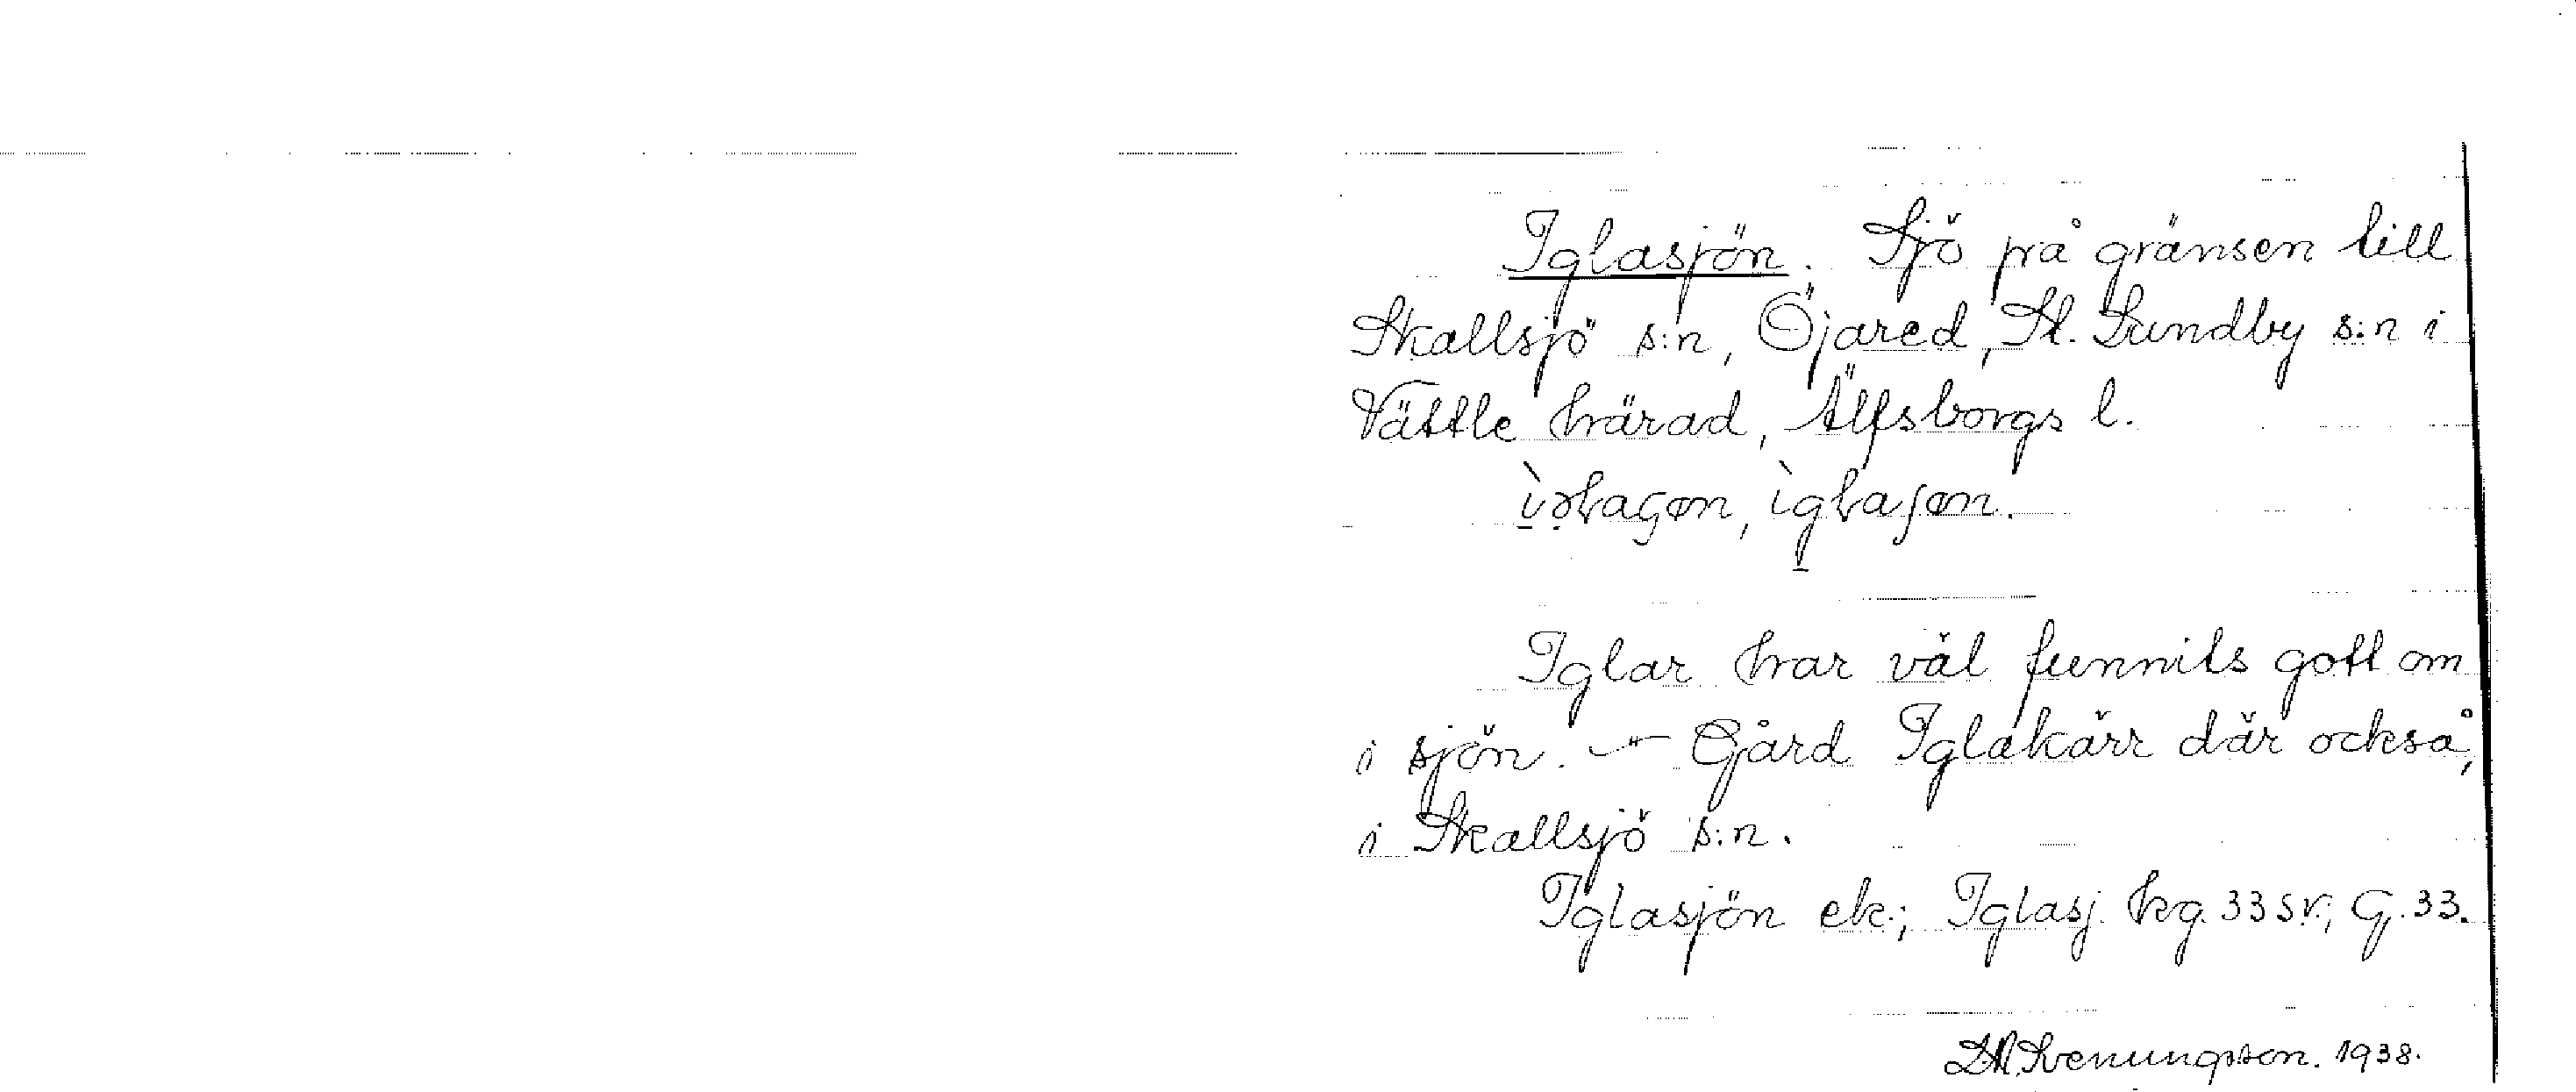 Iglasjön. Sjö på gränsen till
Skallsjö s:n, Öjared, St. Lundby s:n i
Vättle härad, Älfsborgs l.
Iglar har väl funnits gott om
i sjön. — Gård Iglakärr där också,
i Skallsjö s:n.
Iglasjön ek.; Iglasj. hg. 33 SV; G. 33.
1938.